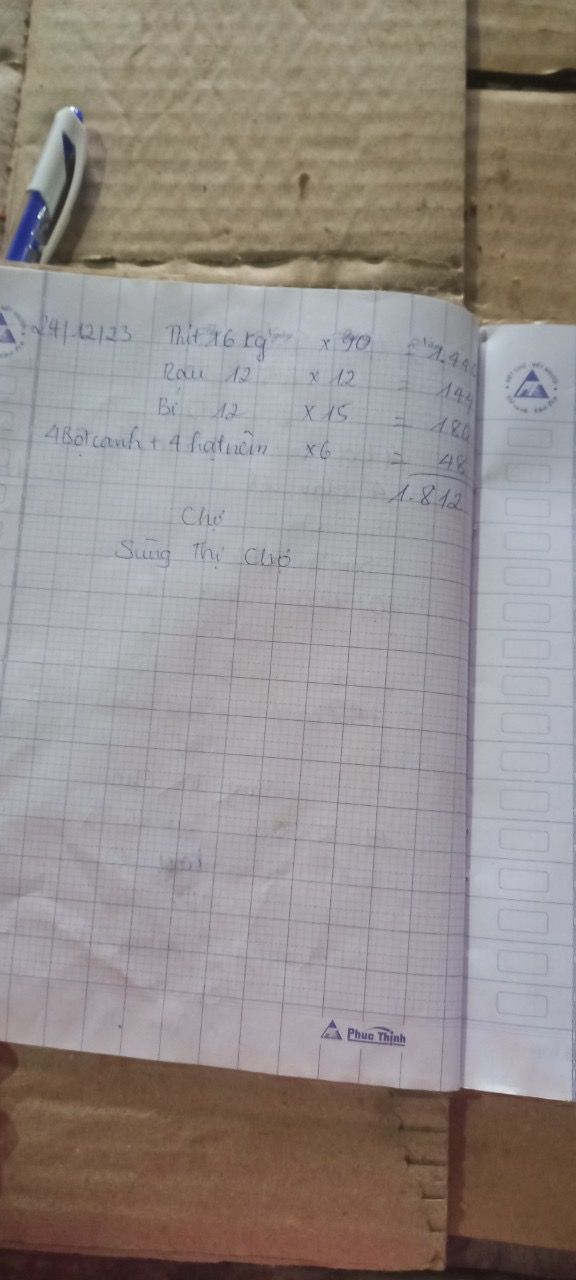 24/12/23 Thịt 16 kg x 90 = 1.440
Rau 12 x 12 = 144
Bí 12 x 15 = 180
4 Bột canh + 4 hạt nêm x 6 = 48
1.812
Chợ
Sùng Thị Chợ
Phuc Thinh